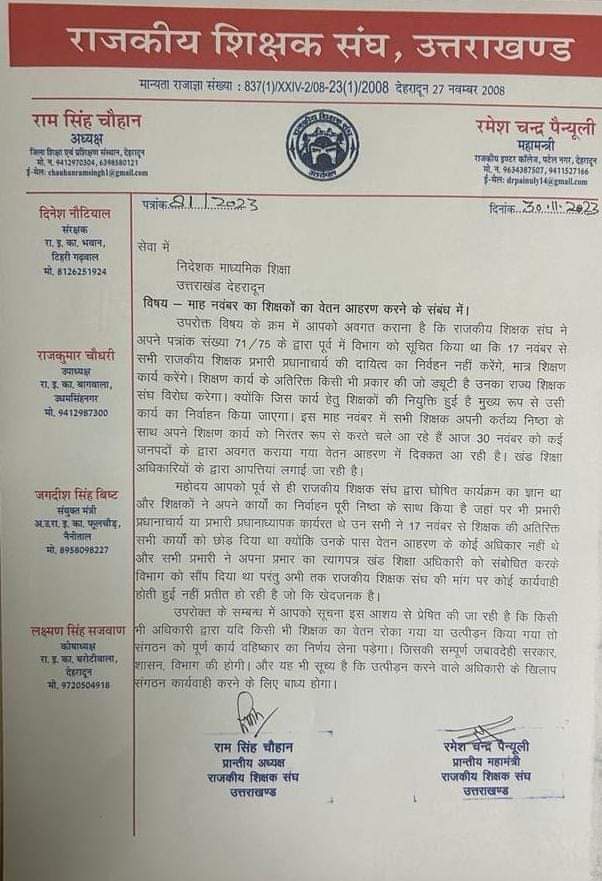 राजकीय शिक्षक संघ, उत्तराखण्ड
मान्यता राजाज्ञा संख्या : 837(1)/XXIV-2/08-23(1)/2008 देहरादून 27 नवम्बर 2008
राम सिंह चौहान
अध्यक्ष
जिला शिक्षा एवं प्रशिक्षण संस्थान, देहरादून
मो. न. 9412970304, 6398580121
ई-मेल: chauhanramsingh1@gmail.com
रमेश चन्द्र पैन्यूली
महामन्त्री
राजकीय इण्टर कॉलेज, पटेल नगर, देहरादून
मो. न. 9634387507, 9411527166
ई-मेल: drpainuly14@gmail.com
पत्रांक 81/2023
दिनांक 30.11.2023
दिनेश नौटियाल
संरक्षक
रा. इ. का. भवान,
टिहरी गढ़वाल
मो. 8126251924
राजकुमार चौधरी
उपाध्यक्ष
रा. इ. का. बागवाला,
उधमसिंहनगर
मो. 9412987300
जगदीश सिंह बिष्ट
संयुक्त मंत्री
अ.उ.रा. इ. का. फूलचौड़,
नैनीताल
मो. 8958098227
लक्ष्मण सिंह सजवाण
कोषाध्यक्ष
रा. इ. का. बरोटीवाला,
देहरादून
मो. 9720504918
सेवा में
निदेशक माध्यमिक शिक्षा
उत्तराखंड देहरादून
विषय – माह नवंबर का शिक्षकों का वेतन आहरण करने के संबंध में।
उपरोक्त विषय के क्रम में आपको अवगत कराना है कि राजकीय शिक्षक संघ ने
अपने पत्रांक संख्या 71/75 के द्वारा पूर्व में विभाग को सूचित किया था कि 17 नवंबर से
सभी राजकीय शिक्षक प्रभारी प्रधानाचार्य की दायित्व का निर्वहन नहीं करेंगे, मात्र शिक्षण
कार्य करेंगे। शिक्षण कार्य के अतिरिक्त किसी भी प्रकार की जो ड्यूटी है उनका राज्य शिक्षक
संघ विरोध करेगा। क्योंकि जिस कार्य हेतु शिक्षकों की नियुक्ति हुई है मुख्य रूप से उसी
कार्य का निर्वाहन किया जाएगा। इस माह नवंबर में सभी शिक्षक अपनी कर्तव्य निष्ठा के
साथ अपने शिक्षण कार्य को निरंतर रूप से करते चले आ रहे हैं आज 30 नवंबर को कई
जनपदों के द्वारा अवगत कराया गया वेतन आहरण में दिक्कत आ रही है। खंड शिक्षा
अधिकारियों के द्वारा आपत्तियां लगाई जा रही है।
महोदय आपको पूर्व से ही राजकीय शिक्षक संघ द्वारा घोषित कार्यक्रम का ज्ञान था
और शिक्षकों ने अपने कार्यों का निर्वहन पूरी निष्ठा के साथ किया है जहां पर भी प्रभारी
प्रधानाचार्य या प्रभारी प्रधानाध्यापक कार्यरत थे उन सभी ने 17 नवंबर से शिक्षक की अतिरिक्त
सभी कार्यो को छोड़ दिया था क्योंकि उनके पास वेतन आहरण के कोई अधिकार नहीं थे
और सभी प्रभारी ने अपना प्रभार का त्यागपत्र खंड शिक्षा अधिकारी को संबोधित करके
विभाग को सौंप दिया था परंतु अभी तक राजकीय शिक्षक संघ की मांग पर कोई कार्यवाही
होती हुई नहीं प्रतीत हो रही है जो कि खेदजनक है।
उपरोक्त के सम्बन्ध में आपको सूचना इस आशय से प्रेषित की जा रही है कि किसी
भी अधिकारी द्वारा यदि किसी भी शिक्षक का वेतन रोका गया या उत्पीड़न किया गया तो
संगठन को पूर्ण कार्य वहिष्कार का निर्णय लेना पड़ेगा। जिसकी सम्पूर्ण जबावदेही सरकार,
शासन, विभाग की होगी। और यह भी सूच्य है कि उत्पीड़न करने वाले अधिकारी के खिलाप
संगठन कार्यवाही करने के लिए बाध्य होगा।
राम सिंह चौहान
प्रान्तीय अध्यक्ष
राजकीय शिक्षक संघ
उत्तराखण्ड
रमेश चन्द्र पैन्यूली
प्रान्तीय महामंत्री
राजकीय शिक्षक संघ
उत्तराखण्ड